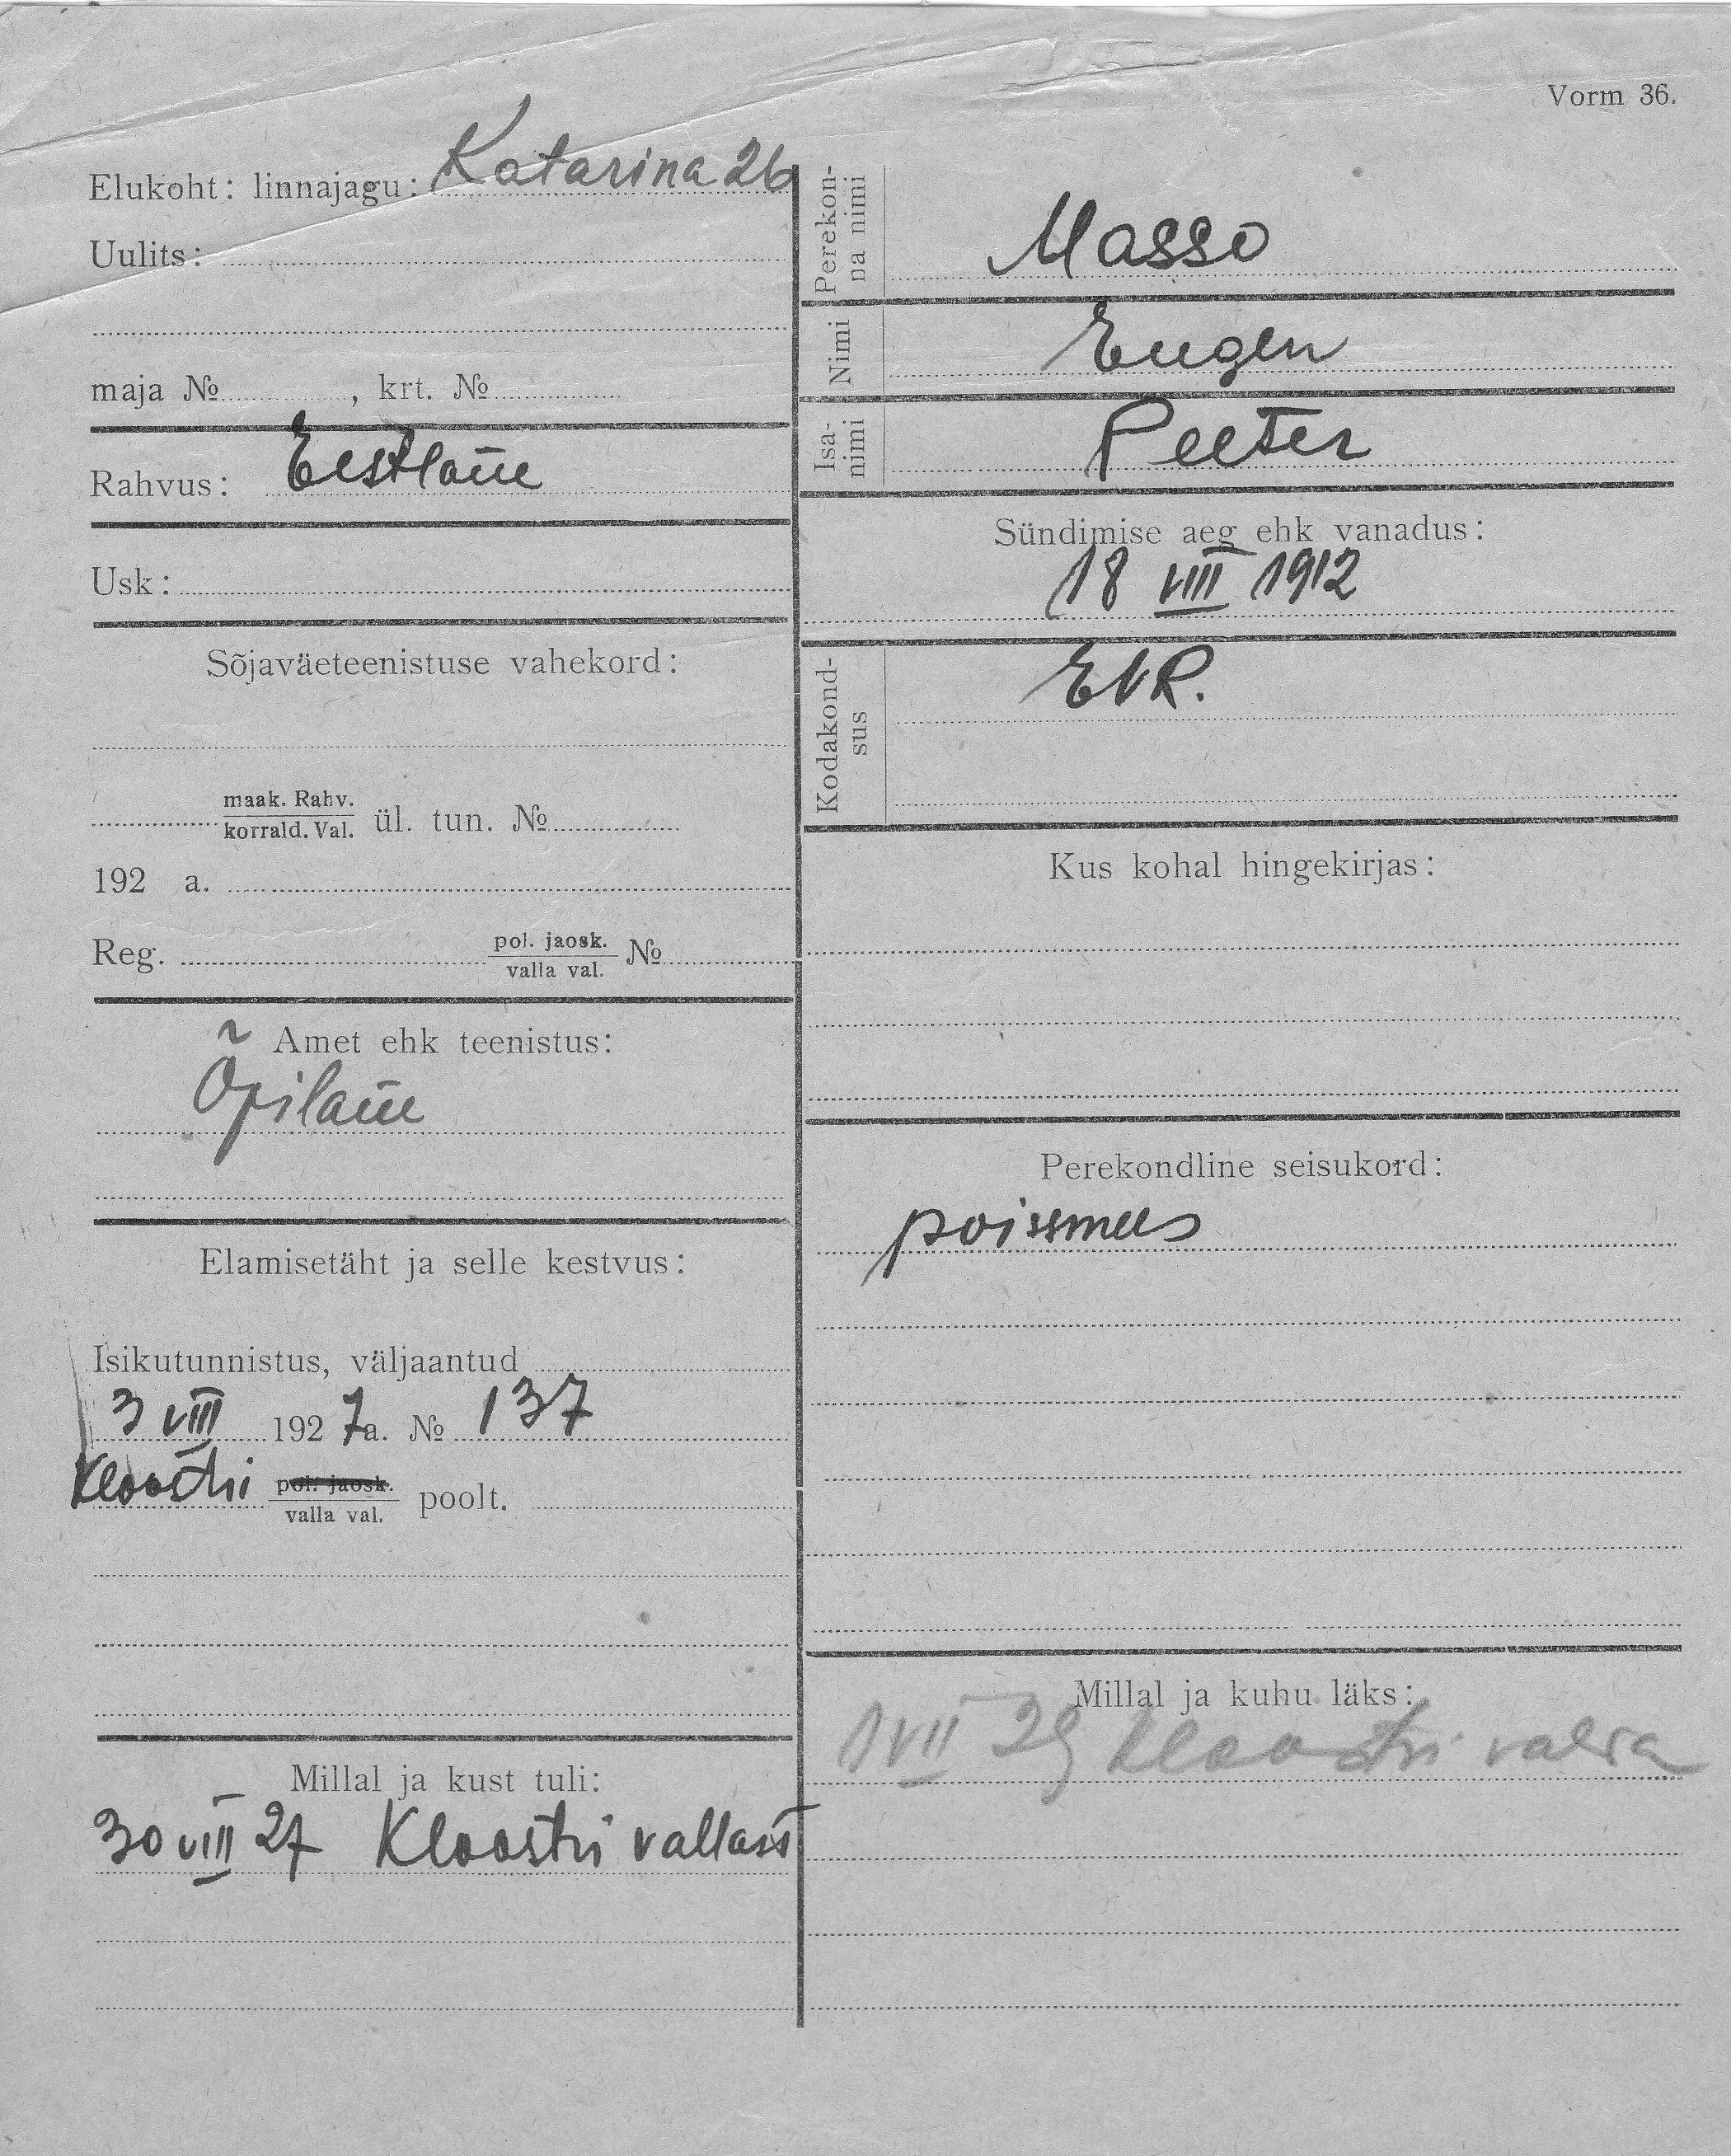 Vorm 36.
Elukoht: linnajagu: Katarina 26
Uulits:
maja № , krt. №
Rahvus: Eestlane
Usk:
Sõjaväeteenistuse vahekord:
maak. Rahv.
korrald. Val. ül. tun. №
192 a.
Reg. pol. jaosk.
valla val. №
Amet ehk teenistus:
Õpilane
Elamisetäht ja selle kestvus:
Isikutunnistus, väljaantud
3 VIII 1927 a. № 137
Kloostri pol. jaosk.
valla val. poolt.
Millal ja kust tuli:
30 VIII 27 Kloostri vallast
Perekon-
na nimi Masso
Nimi Eugen
Isa-
nimi Peeter
Sündimise aeg ehk vanadus:
18 VIII 1912
Kodakond-
sus EVR.
Kus kohal hingekirjas:
Perekondline seisukord:
poissmees
Millal ja kuhu läks:
1 VII 29 Kloostri valda